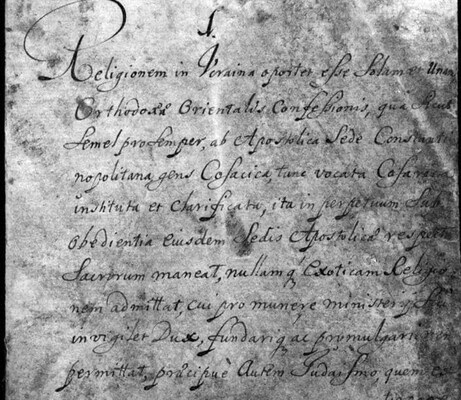 1.
Religionem in Ucraina oportet esse Solam et Unam
Orthodoxæ Orientalis Confessionis, qua sicut
semel pro semper, ab Apostolica Sede Constanti
nopolitana gens Cosacica, tunc vocata Cosarica
instituta et clarificata, ita in perpetuum Sub
obedientia eiusdem Sedis Apostolicæ respectu
Sacrorum maneat, nullamq́ Exoticam Religio
nem admittat, cui pro munere ministerij sui
invigilet Dux, fundariq́ ac promulgari non
permittat, præcipuè Autem Judaismo, quem